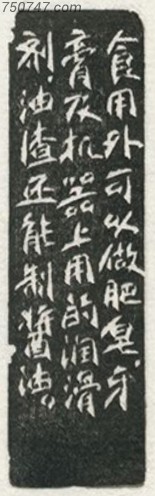 750747.com
食用外可以做肥皂、牙
膏及机器上用的润滑
剂，油渣还能制酱油。